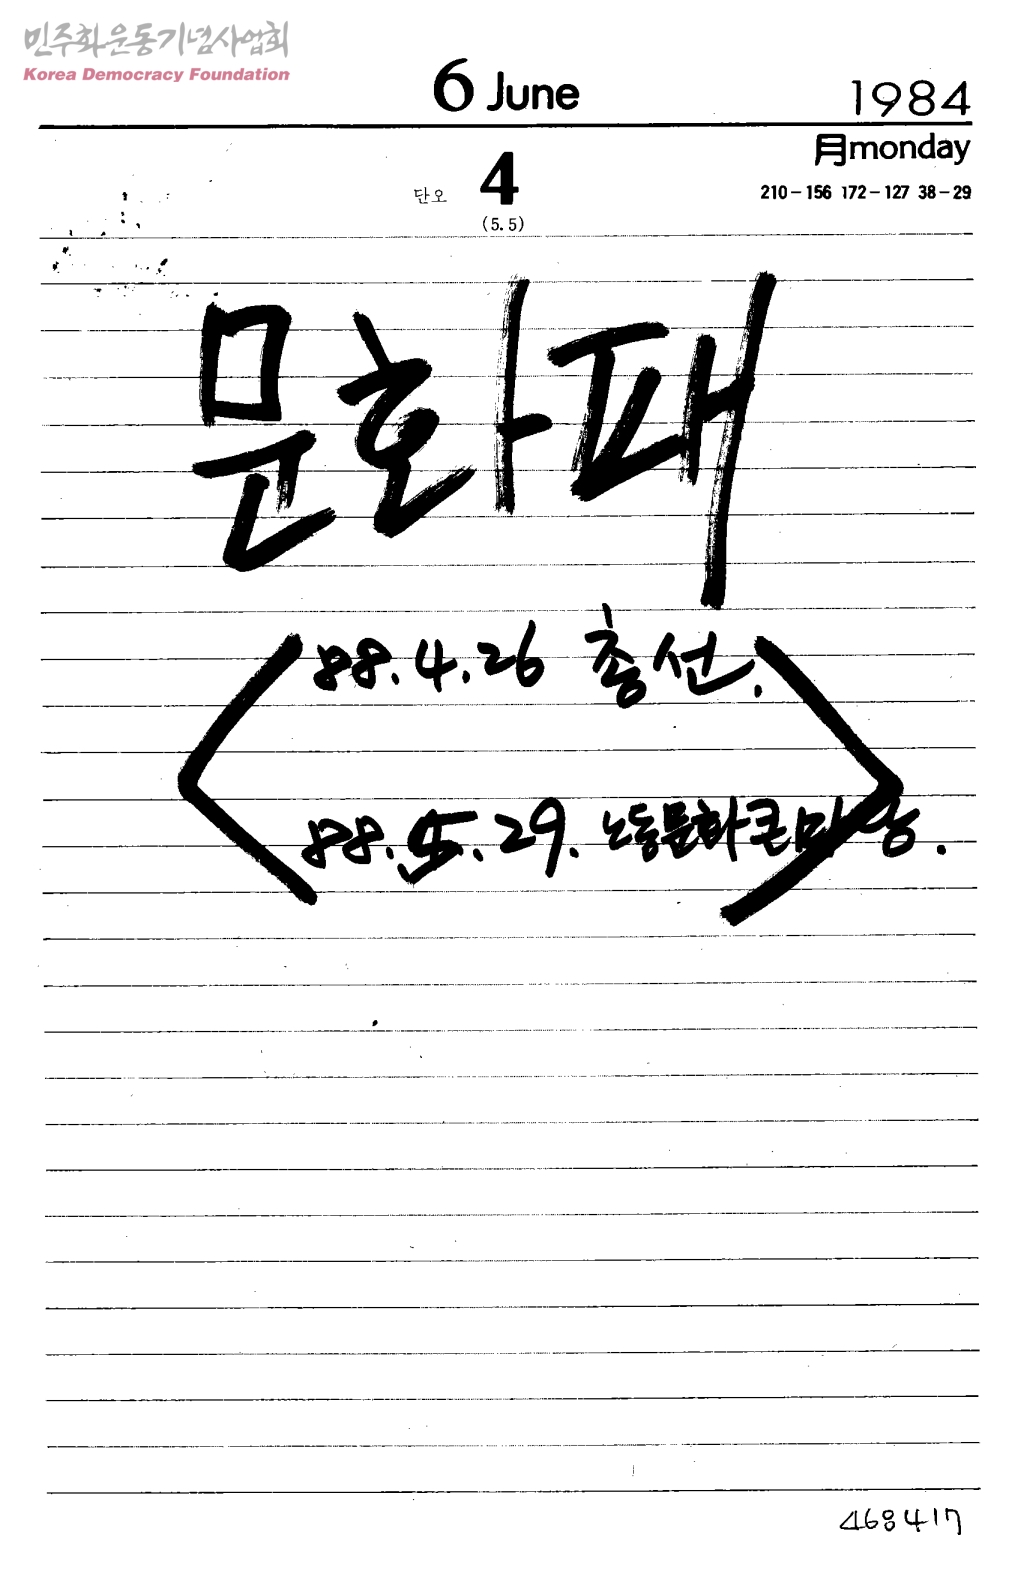 민주화운동기념사업회
Korea Democracy Foundation
6 June 1984
月monday
단오 4 210-156 172-127 38-29
(5.5)
문화패
88.4.26 총선.
88.5.29. 노동문화큰마당.
468417